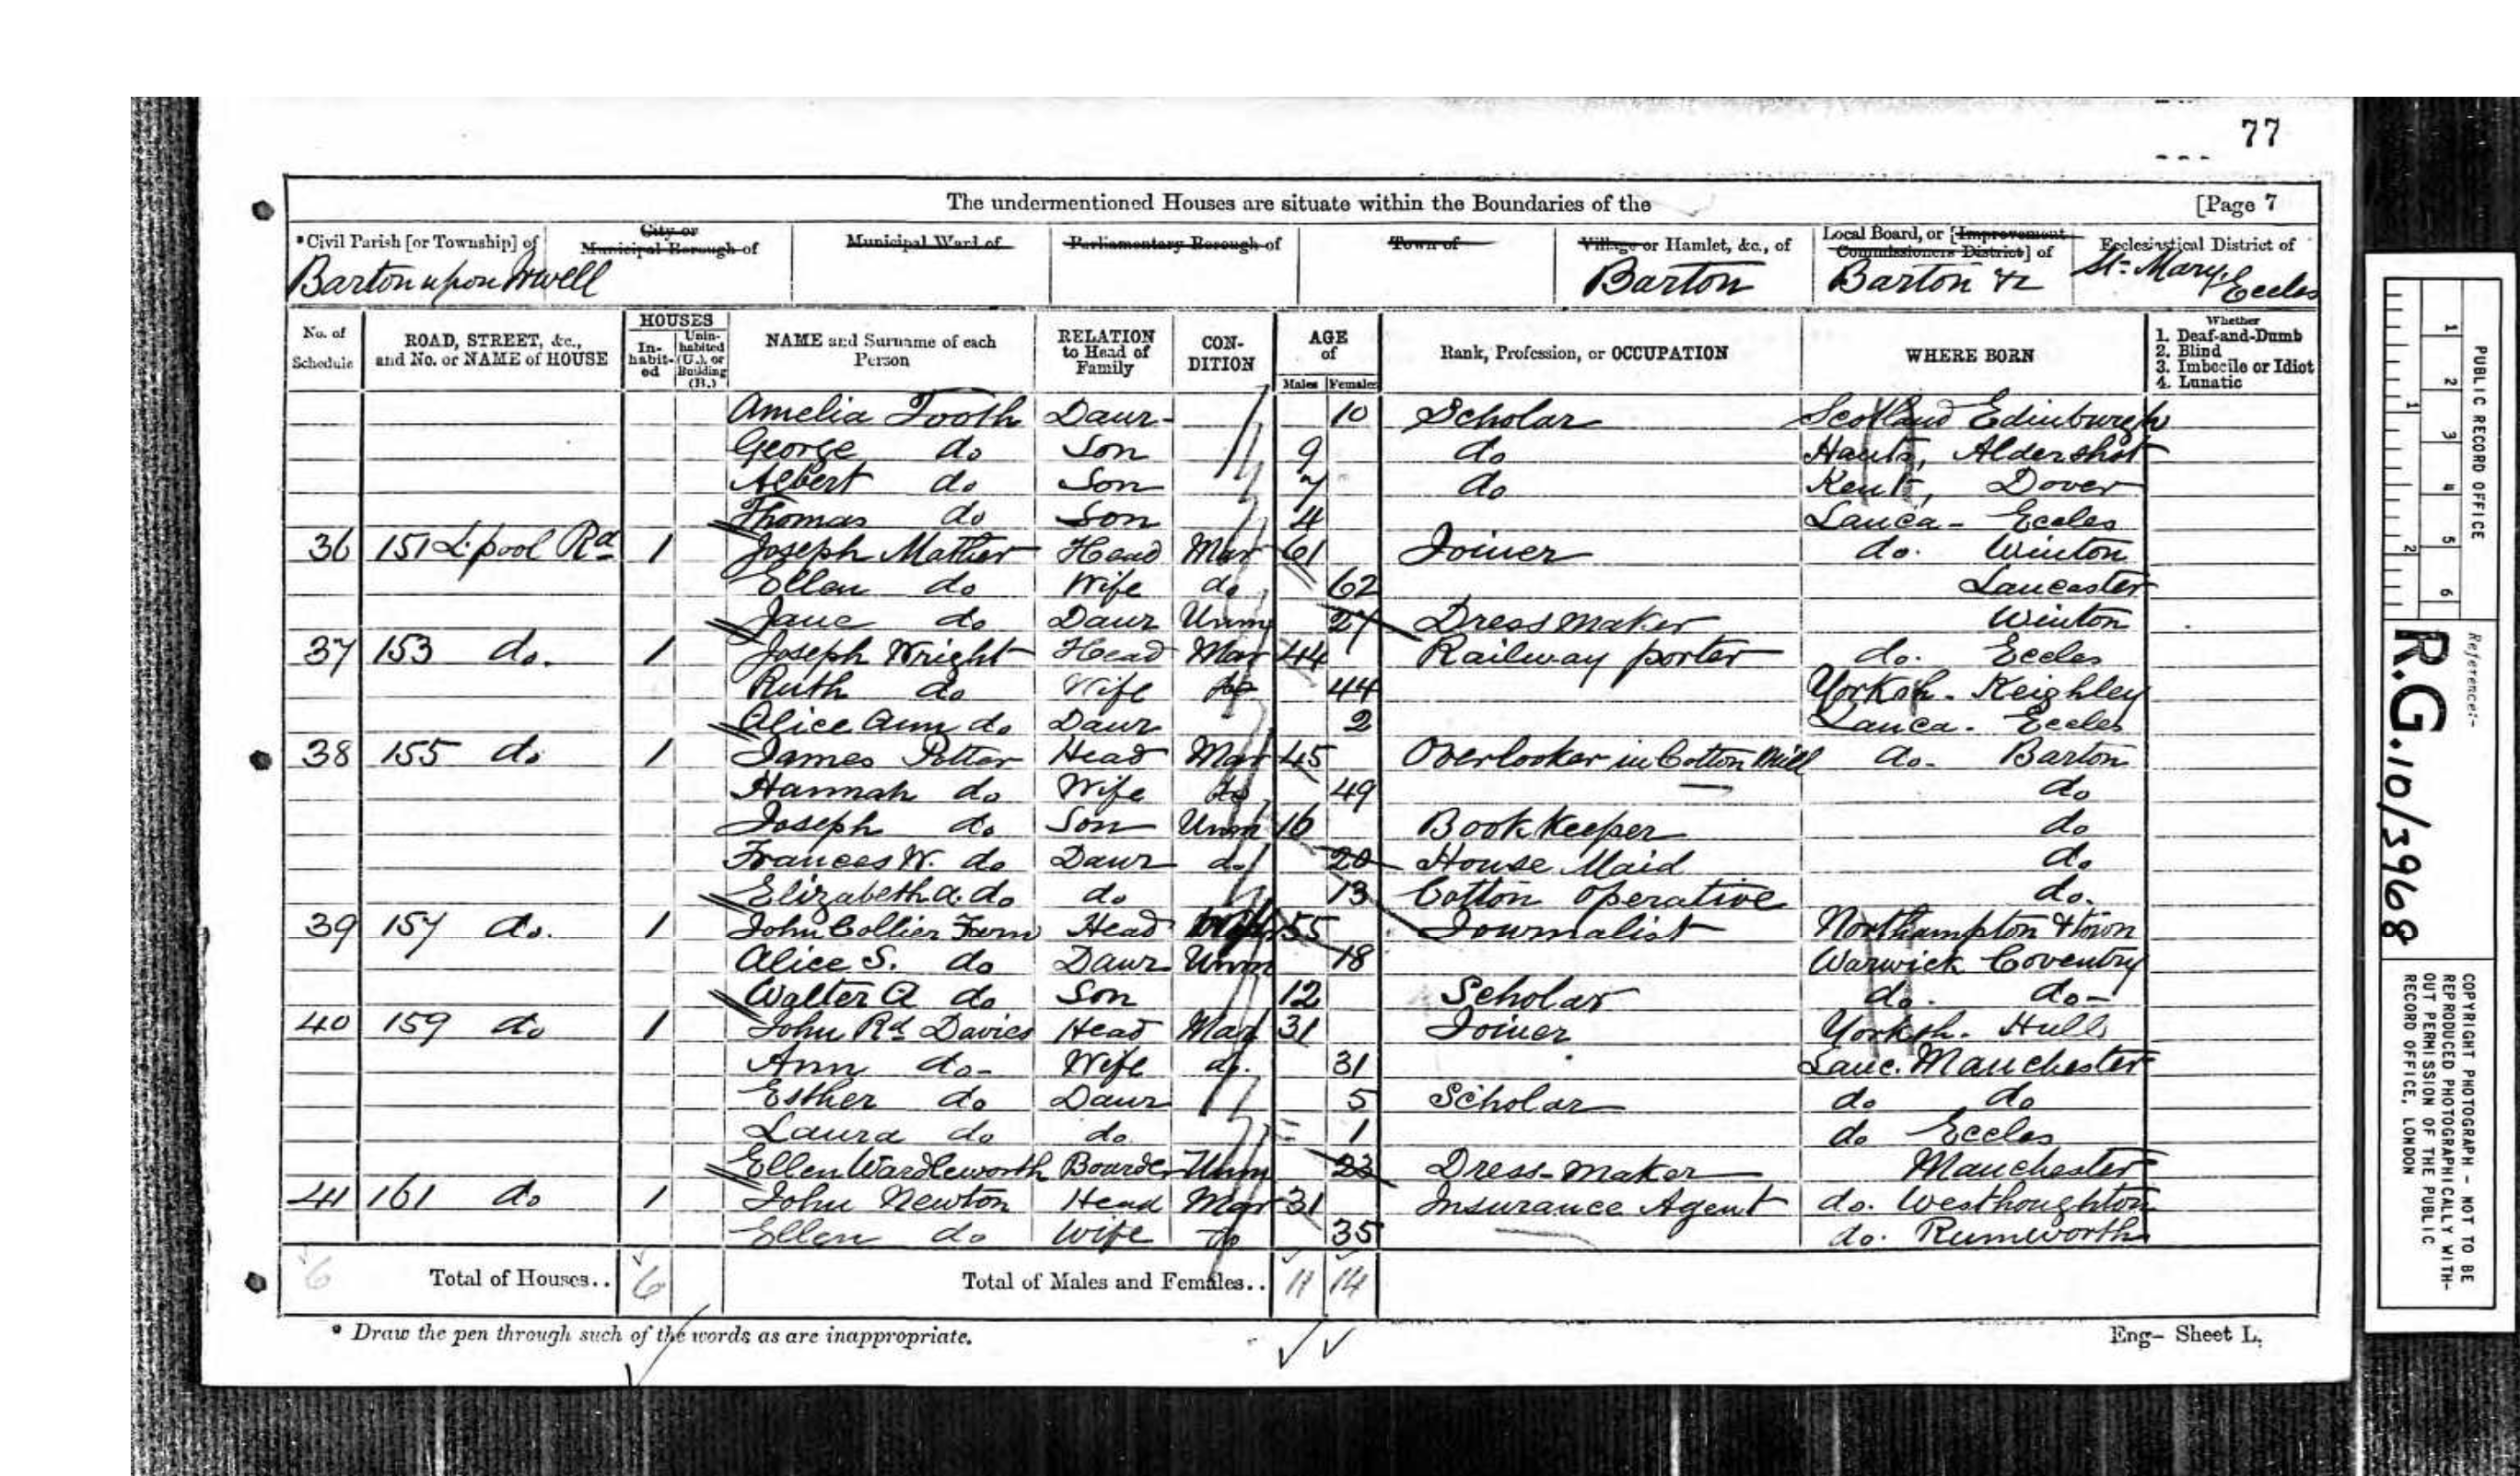 77
The undermentioned Houses are situate within the Boundaries of the [Page 7
*Civil Parish [or Township] of City or Municipal Borough of Municipal Ward of Parliamentary Borough of Town of Village or Hamlet, &c., of Local Board, or [Improvement Commissioners District] of Ecclesiastical District of
Barton upon Irwell Barton Barton &c St. Mary Eccles
No. of Schedule ROAD, STREET, &c., and No. or NAME of HOUSE HOUSES In-habit-ed Unin-habited (U.), or Building (B.) NAME and Surname of each Person RELATION to Head of Family CON-DITION AGE of Males Females Rank, Profession, or OCCUPATION WHERE BORN Whether 1. Deaf-and-Dumb 2. Blind 3. Imbecile or Idiot 4. Lunatic
Amelia Tooth Daur 10 Scholar Scotland Edinburgh
George do Son 9 do Hants, Aldershot
Albert do Son 7 do Kent, Dover
Thomas do Son 4 Lanca- Eccles
36 151 L'pool Rd 1 Joseph Mather Head Mar 61 Joiner do. Winton
Ellen do Wife do 62 Lancaster
Jane do Daur Unm 27 Dressmaker Winton
37 153 do. 1 Joseph Wright Head Mar 44 Railway porter do. Eccles
Ruth do Wife do 44 Yorksh- Keighley
Alice Ann do Daur 2 Lanca. Eccles
38 155 do 1 James Potter Head Mar 45 Overlooker in Cotton Mill do- Barton
Hannah do Wife do 49 do
Joseph do Son Unm 16 Bookkeeper do
Frances W. do Daur do 20 House Maid do
Elizabeth A. do do 13 Cotton operative do.
39 157 do. 1 John Collier Farn Head 55 Journalist Northampton &town
Alice S. do Daur Unm 18 Warwick Coventry
Walter A do Son 12 Scholar do. do-
40 159 do 1 John Rd Davies Head Mar 31 Joiner Yorksh. Hull
Ann do- Wife do. 31 Lanc. Manchester
Esther do Daur 5 Scholar do do
Laura do do 1 do Eccles
Ellen Wardleworth Boarder Unm 23 Dress-maker Manchester
41 161 do 1 John Newton Head Mar 31 Insurance Agent do. Westhoughton
Ellen do Wife do 35 do. Rumworth
6 Total of Houses.. 6 Total of Males and Females.. 11 14
* Draw the pen through such of the words as are inappropriate.
Eng- Sheet L.
1 2
1 2 3 4 5 6
PUBLIC RECORD OFFICE
Reference:-
R.G.10/3968
COPYRIGHT PHOTOGRAPH - NOT TO BE
REPRODUCED PHOTOGRAPHICALLY WITH-
OUT PERMISSION OF THE PUBLIC
RECORD OFFICE, LONDON